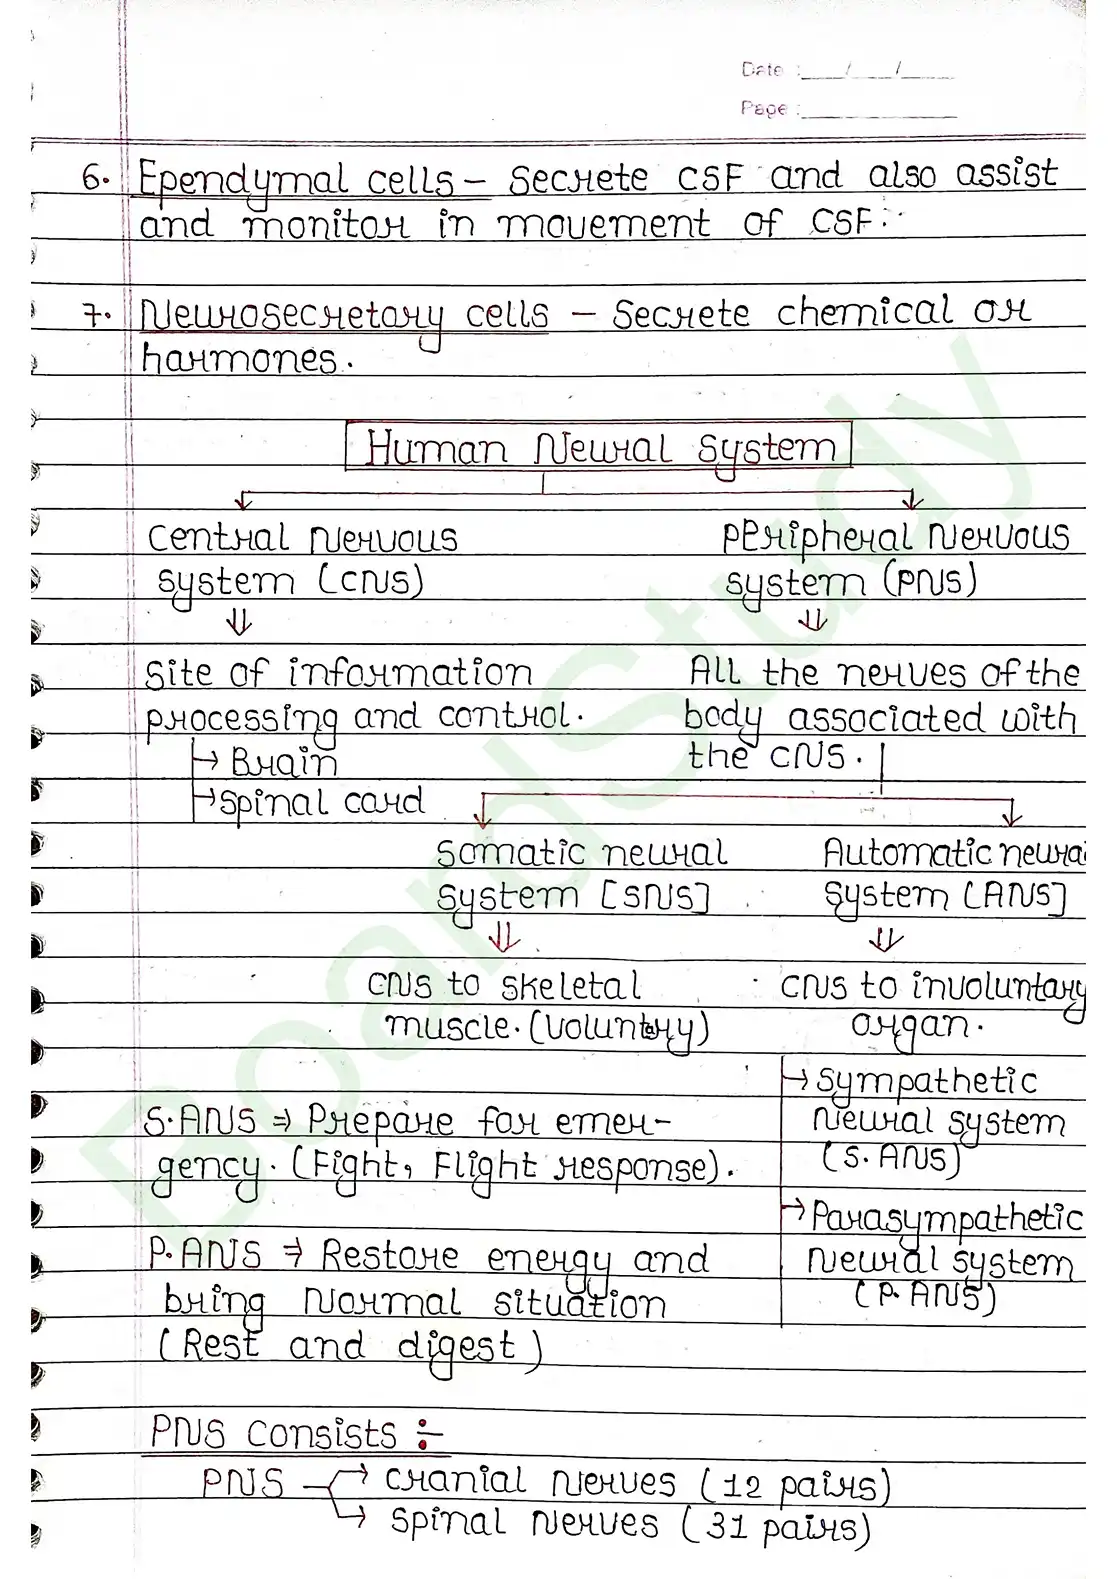 Date :___/___/___
Page :___________
6. Ependymal cells - Secrete CSF and also assist
and monitor in movement of CSF.
7. Neurosecretory cells - Secrete chemical or
harmones.
Human Neural System
Central Nervous
system (CNS)
PEripheral Nervous
system (PNS)
Site of information
processing and control.
→ Brain
→ Spinal card
All the nerves of the
body associated with
the CNS.
Somatic neural
system [SNS]
Automatic neura
system [ANS]
CNS to skeletal
muscle. (Voluntary)
CNS to involuntary
organ.
→ Sympathetic
Neural system
(S. ANS)
→ Parasympathetic
Neural system
(P. ANS)
S.ANS ⇒ Prepare for emer-
gency. (Fight, Flight response).
P.ANS ⇒ Restore energy and
bring Normal situation
(Rest and digest)
PNS Consists :-
PNS → Cranial Nerves (12 pairs)
→ Spinal Nerves (31 pairs)
BoardStudy